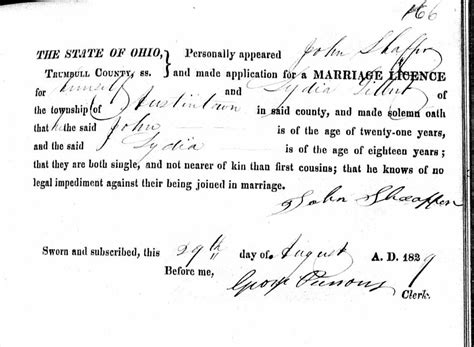 166
THE STATE OF OHIO, } Personally appeared John Shaffer
TRUMBULL COUNTY, ss. } and made application for a MARRIAGE LICENCE
for himself and Lydia
the township of Austintown in said county, and made solemn oath
that he the said John is of the age of twenty-one years,
and the said Lydia is of the age of eighteen years;
that they are both single, and not nearer of kin than first cousins; that he knows of no
legal impediment against their being joined in marriage.
John Shaffer
Sworn and subscribed, this 29th day of August A. D. 1829
Before me, George Parsons
Clerk.